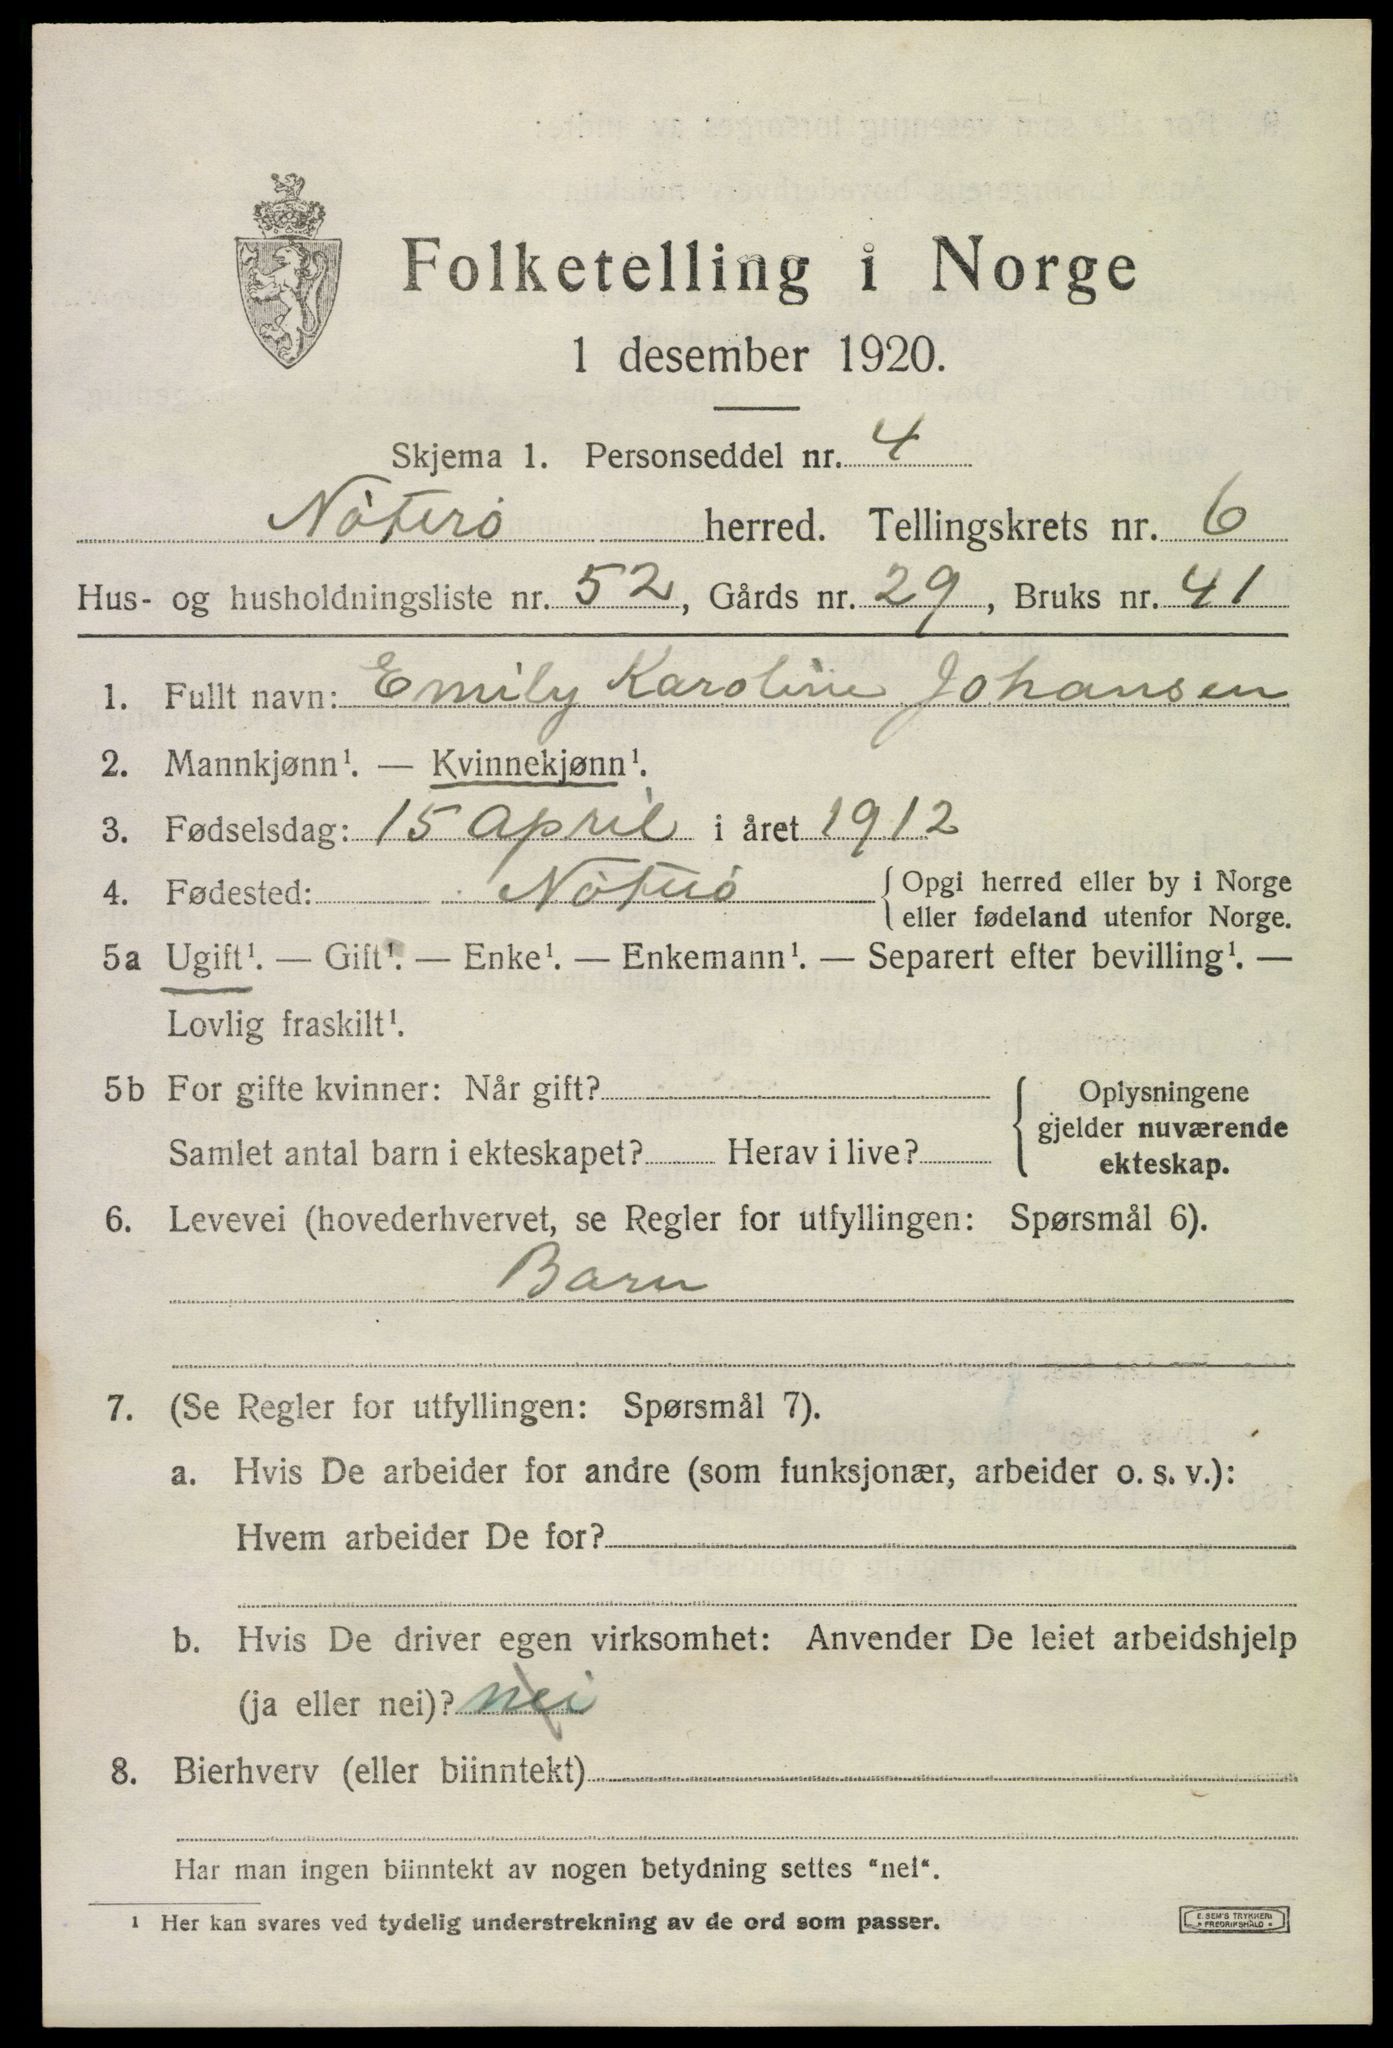 Folketelling i Norge
1 desember 1920.
Skjema 1. Personseddel nr. 4
Nøterø herred. Tellingskrets nr. 6
Hus- og husholdningsliste nr. 52, Gårds nr. 29, Bruks nr. 41
1. Fullt navn: Emily Karoline Johansen
2. Mannkjønn¹. — Kvinnekjønn¹.
3. Fødselsdag: 15 april i året 1912
4. Fødested: Nøterø { Opgi herred eller by i Norge
eller fødeland utenfor Norge.
5a Ugift¹. — Gift¹. — Enke¹. — Enkemann¹. — Separert efter bevilling¹. —
Lovlig fraskilt¹.
5b For gifte kvinner: Når gift?
Samlet antal barn i ekteskapet? Herav i live?
Oplysningene
gjelder nuværende
ekteskap.
6. Levevei (hovederhvervet, se Regler for utfyllingen: Spørsmål 6).
Barn
7. (Se Regler for utfyllingen: Spørsmål 7).
a. Hvis De arbeider for andre (som funksjonær, arbeider o. s. v.):
Hvem arbeider De for?
b. Hvis De driver egen virksomhet: Anvender De leiet arbeidshjelp
(ja eller nei)? nei
8. Bierhverv (eller biinntekt)
Har man ingen biinntekt av nogen betydning settes "nei".
¹ Her kan svares ved tydelig understrekning av de ord som passer.
E. SEM'S TRYKKERI
FREDRIKSHALD